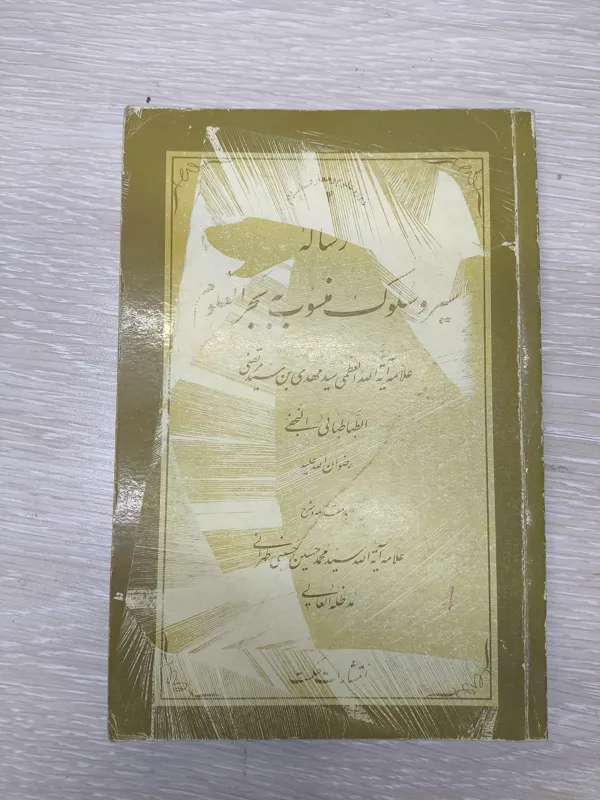 رسالهٔ
سیر و سلوک منسوب به بحر العلوم
علامه آیة الله العظمی سید مهدی بن سید مرتضی
الطباطبائی النجفی
رضوان الله علیه
با مقدمه و شرح
علامه آیة الله سید محمد حسین حسینی طهرانی
مد ظله العالی
انتشارات حکمت